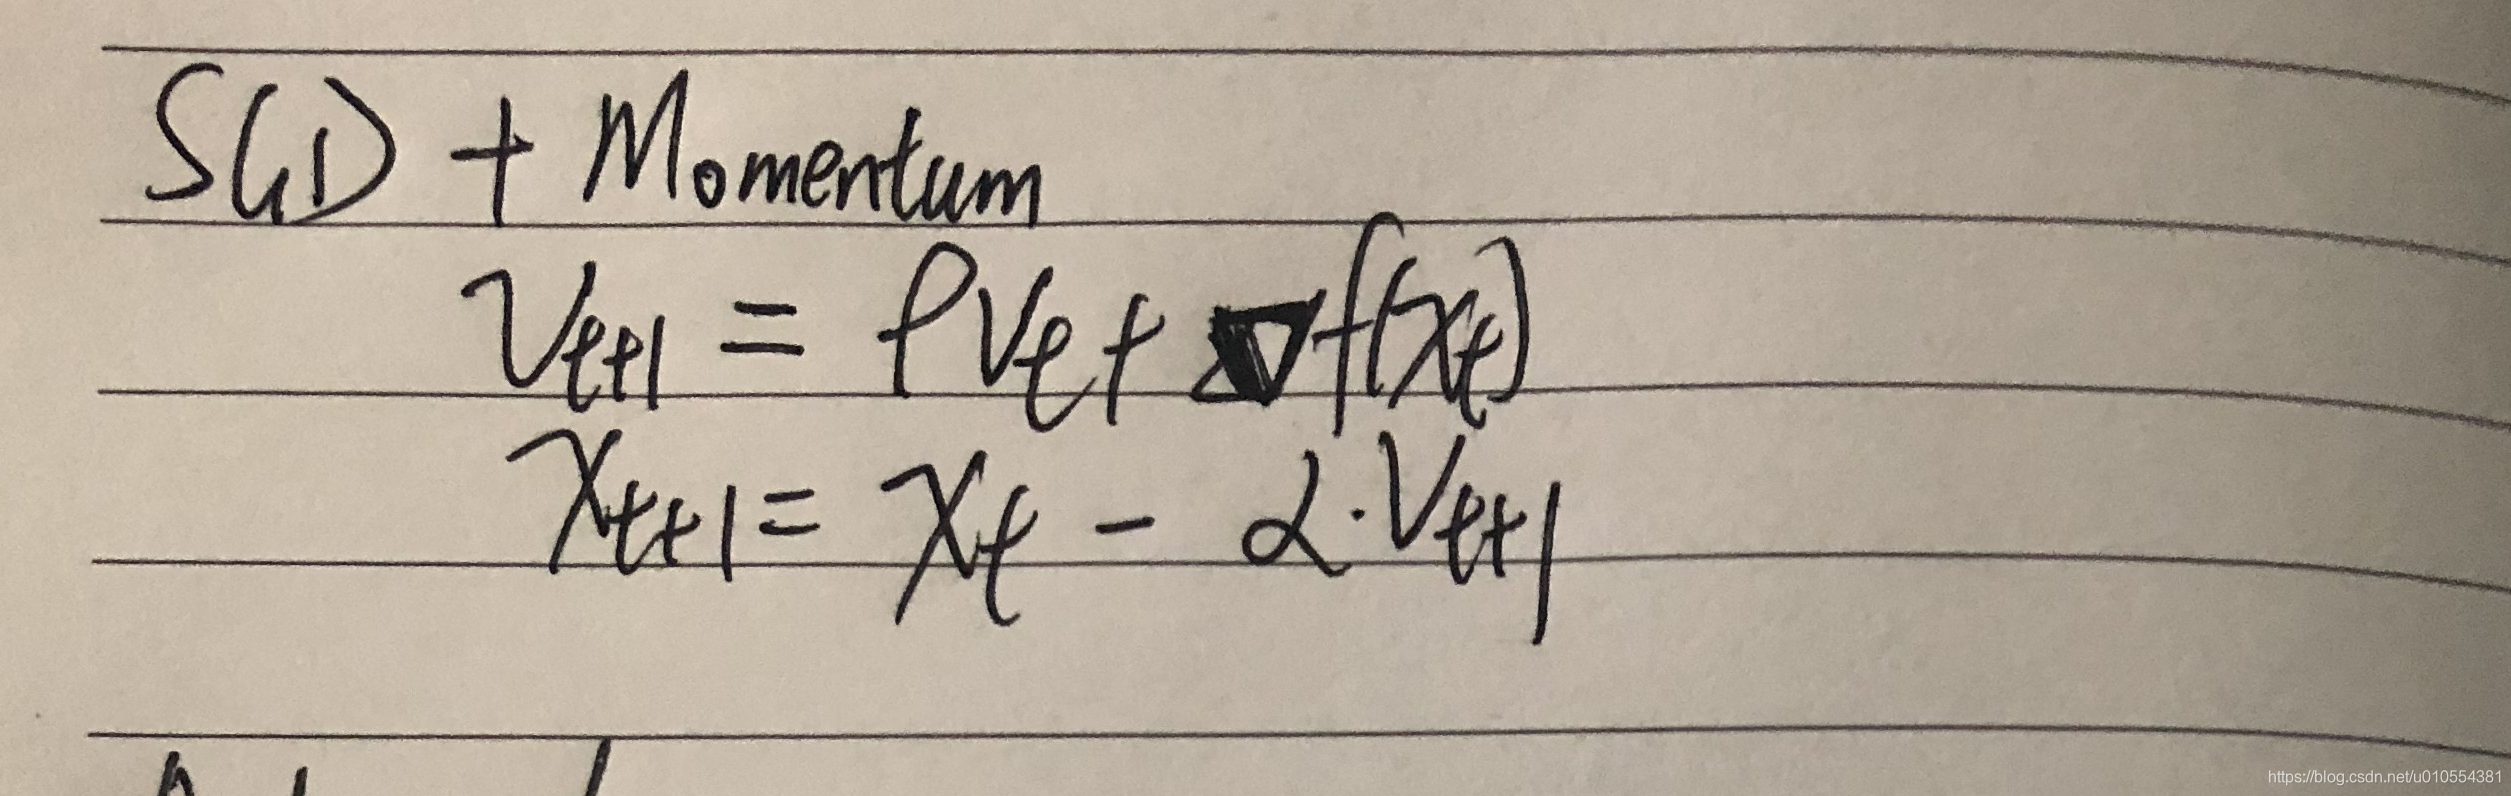 SGD + Momentum
v_{t+1} = ρv_t + ∇f(x_t)
x_{t+1} = x_t - α·v_{t+1}
https://blog.csdn.net/u010554381